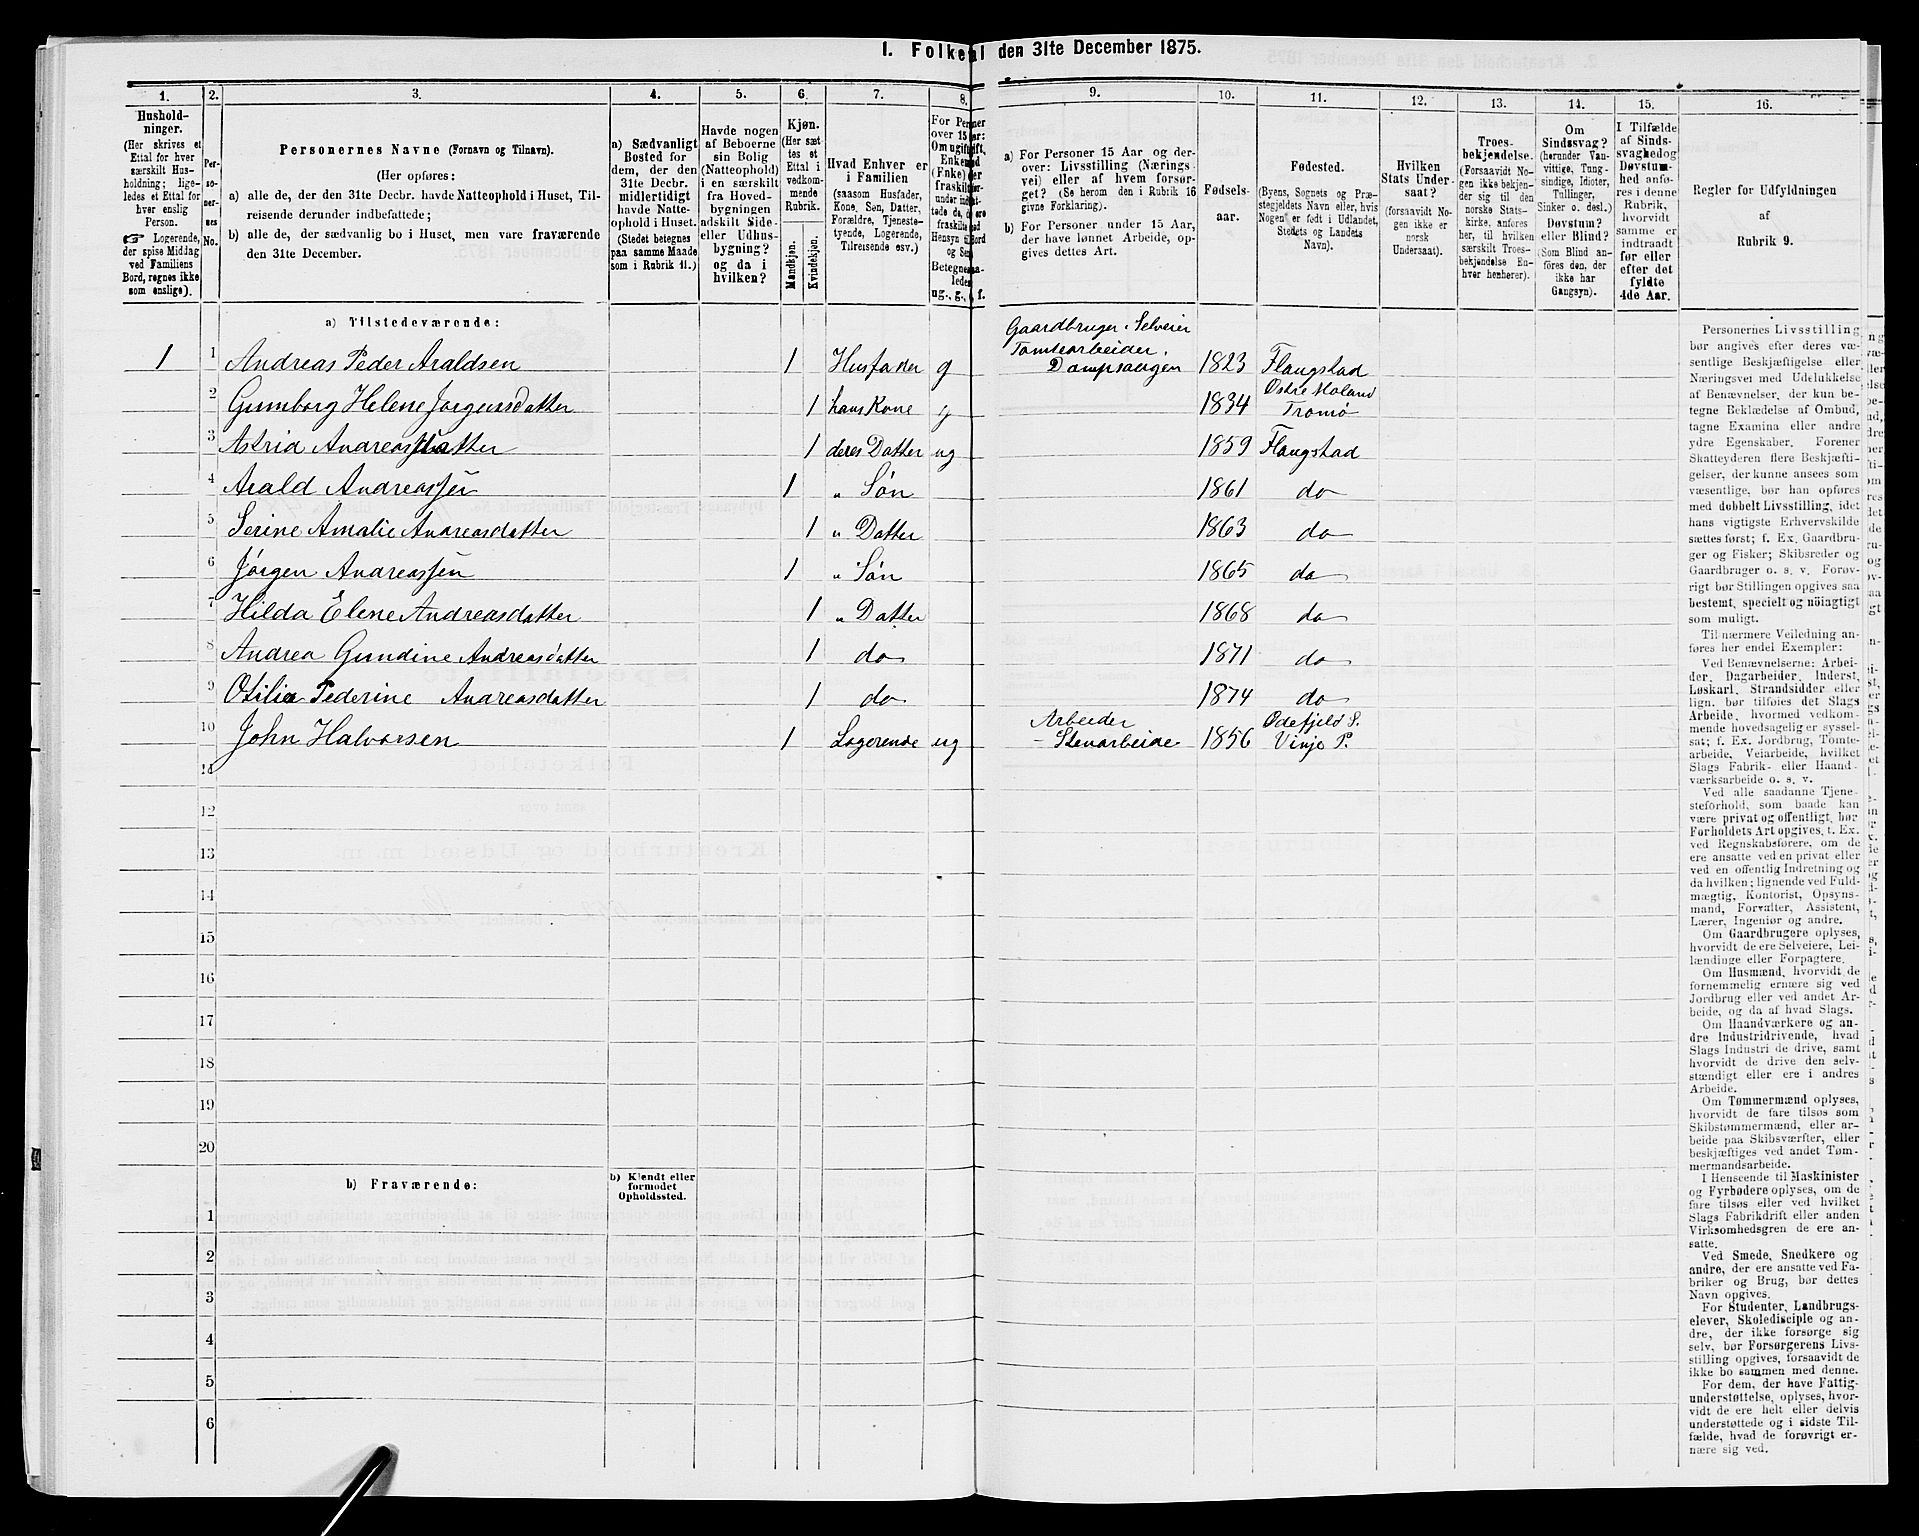 1. Folketal den 31te December 1875.
1. 2. 3. 4. 5. 6. 7. 8. 9. 10. 11. 12. 13. 14. 15. 16.
Hushold-
ninger.
(Her skrives et
Ettal for hver
særskilt Hus-
holdning; lige-
ledes et Ettal for
hver enslig
Person.
Logerende,
der spise Middag
ved Familiens
Bord, regnes ikke
som enslige).
Per-
so-
ner-
nes
No.
Personernes Navne (Fornavn og Tilnavn).
(Her opføres:
a) alle de, der den 31te Decbr. havde Natteophold i Huset, Til-
reisende derunder indbefattede;
b) alle de, der sædvanlig bo i Huset, men vare fraværende
den 31te December.
a) Sædvanligt
Bosted for
dem, der den
31te Decbr.
midlertidigt
havde Natte-
ophold i Huset.
(Stedet betegnes
paa samme Maade
som i Rubrik 11.)
Havde nogen
af Beboerne
sin Bolig
(Natteophold)
i en særskilt
fra Hoved-
bygningen
adskilt Side-
eller Udhus-
bygning?
og da i
hvilken?
Kjøn.
(Her sæt
tes et
Ettal i
vedkom-
mende
Rubrik.
Mandkjøn.
Kvindekjøn.
Hvad Enhver er
i Familien
(saasom Husfader,
Kone, Søn, Datter,
Forældre, Tjeneste-
tyende, Logerende,
Tilreisende osv.)
a) For Personer 15 Aar og der-
over: Livsstilling (Nærings
vei) eller af hvem forsør-
get? (Se herom den i Rubrik 16
givne Forklaring).
b) For Personer under 15 Aar,
der have lønnet Arbeide, op-
gives dettes Art.
Fødsels-
aar.
Fødested.
(Byens, Sognets og Præ-
stegjeldets Navn eller, hvis
Nogen er født i Udlandet,
Stedets og Landets
Navn).
Hvilken
Stats Under-
saat?
(forsaavidt No-
gen ikke er
norsk
Undersaat).
Troes-
bekjendelse.
(Forsaavidt No-
gen ikke bekjen-
der sig til den
norske Stats-
kirke, anføres
her, til hvilken
særskilt Troes-
bekjendelse En-
hver henhører).
Om
Sindssvag?
(herunder Van-
vittige, Tung-
sindige, Idioter,
Tullinger,
Sinker o. desl.)
Døvstum?
eller Blind?
(Som Blind an-
føres den, der
ikke har
Gangsyn).
I Tilfælde
af Sinds-
svaghed og
Døvstum-
hed anfø-
res i denne
Rubrik,
hvorvidt
samme er
indtraadt
før eller
efter det
fyldte
4de Aar.
Regler for Udfyldningen
af
Rubrik 9.
a) Tilstedeværende:
Gaardbruger, Selveier
Tomtearbeider.
1 1 Andreas Peder Araldsen 1 Husfader g Dampsaugen 1823 Flaugstad
2 Gumborg Helene Jorgensdatter 1 hans Kone g 1834 Østre Moland
Tromø
3 Astrid Andreasdatter 1 deres Datter ug 1859 Flaugstad
4 Arald Andreassen 1 " Søn 1861 do
5 Serine Amalie Andreasdatter 1 " Datter 1863 do
6 Jørgen Andreassen 1 " Søn 1865 do
7 Hilda Elene Andreasdatter 1 " Datter 1868 do
8 Andrea Gundine Andreasdatter 1 do 1871 do
9 Otilia Pederine Andreasdatter 1 do 1874 do
10 John Halvorsen 1 Logerende ug Arbeider
- Stenarbeide 1856
Vinje P.
11
12
13
14
15
16
17
18
19
20
b) Fraværende:
b) Kjendt eller
formodet
Opholdssted.
1
2
3
4
5
6
Personernes Livsstilling
bør angives efter deres væ-
sentlige Beskjæftigelse eller
Næringsvei med Udelukkelse
af Benævnelser, der kun be-
tegne Beklædelse af Ombud,
tagne Examina eller andre
ydre Egenskaber. Forener
Skatteyderen flere Beskjæfti-
gelser, der kunne ansees som
væsentlige, bør han opføres
med dobbelt Livsstilling, idet
hans vigtigste Erhvervskilde
sættes først; f. Ex. Gaardbru-
ger og Fisker; Skibsreder og
Gaardbruger o. s. v. Forøv-
rigt bør Stillingen opgives saa
bestemt, specielt og nöiagtigt
som muligt.
Til nærmere Veiledning an-
føres her endel Exempler:
Ved Benævnelserne: Arbei-
der, Dagarbeider, Inderst,
Løskarl, Strandsidder eller
lign. bør tilføies det Slags
Arbeide, hvormed vedkom-
mende hovedsagelig er syssel-
sat; f. Ex. Jordbrug, Tømte-
arbeide, Veiarbeide, hvilket
Slags Fabrik- eller Haand-
værksarbeide o. s. v.
Ved alle saadanne Tjene-
steforhold, som baade kan
være privat og offentligt, bør
Forholdets Art opgives, t. Ex.
ved Regnskabsførere, om de
ere ansatte ved en privat eller
ved en offentlig Indretning og
da hvilken; lignende ved Fuld-
mægtig, Kontorist, Opsyns-
mand, Forvalter, Assistent,
Lærer, Ingeniør og andre.
Om Gaardbrugere oplyses,
hvorvidt de ere Selveiere, Lei-
lændinge eller Forpagtere.
Om Husmænd, hvorvidt de
fornemmelig ernære sig ved
Jordbrug eller ved andet Ar-
beide, og da af hvad Slags.
Om Haandværkere og an-
dre Industridrivende, hvad
Slags Industri de drive, samt
hvorvidt de drive den selv-
stændigt eller ere i andres
Arbeide.
Om Tømmermænd oplyses,
hvorvidt de fare tilsøs som
Skibstømmermænd, eller ar-
beide paa Skibsværfter, eller
beskjæftiges ved andet Tøm-
mermandsarbeide.
I Henseende til Maskinister
og Fyrbødere oplyses, om de
fare tilsøs eller ved hvilket
Slags Fabrikdrift eller anden
Virksomhedsgren de ere an-
satte.
Ved Smede, Snedkere og
andre, der ere ansatte ved Fa-
briker og Brug, bør dettes
Navn opgives.
For Studenter, Landbrugs-
elever, Skoledisciple og an-
dre, der ikke forsørge sig
selv, bør Forsørgerens Livs-
stilling opgives, forsaavidt de
ikke bo sammen med denne.
For dem, der have Fattig-
understøttelse, oplyses, hvor-
vidt de ere helt eller delvis
understøttede og i sidste Til-
fælde, hvad de forøvrigt er-
nære sig ved.